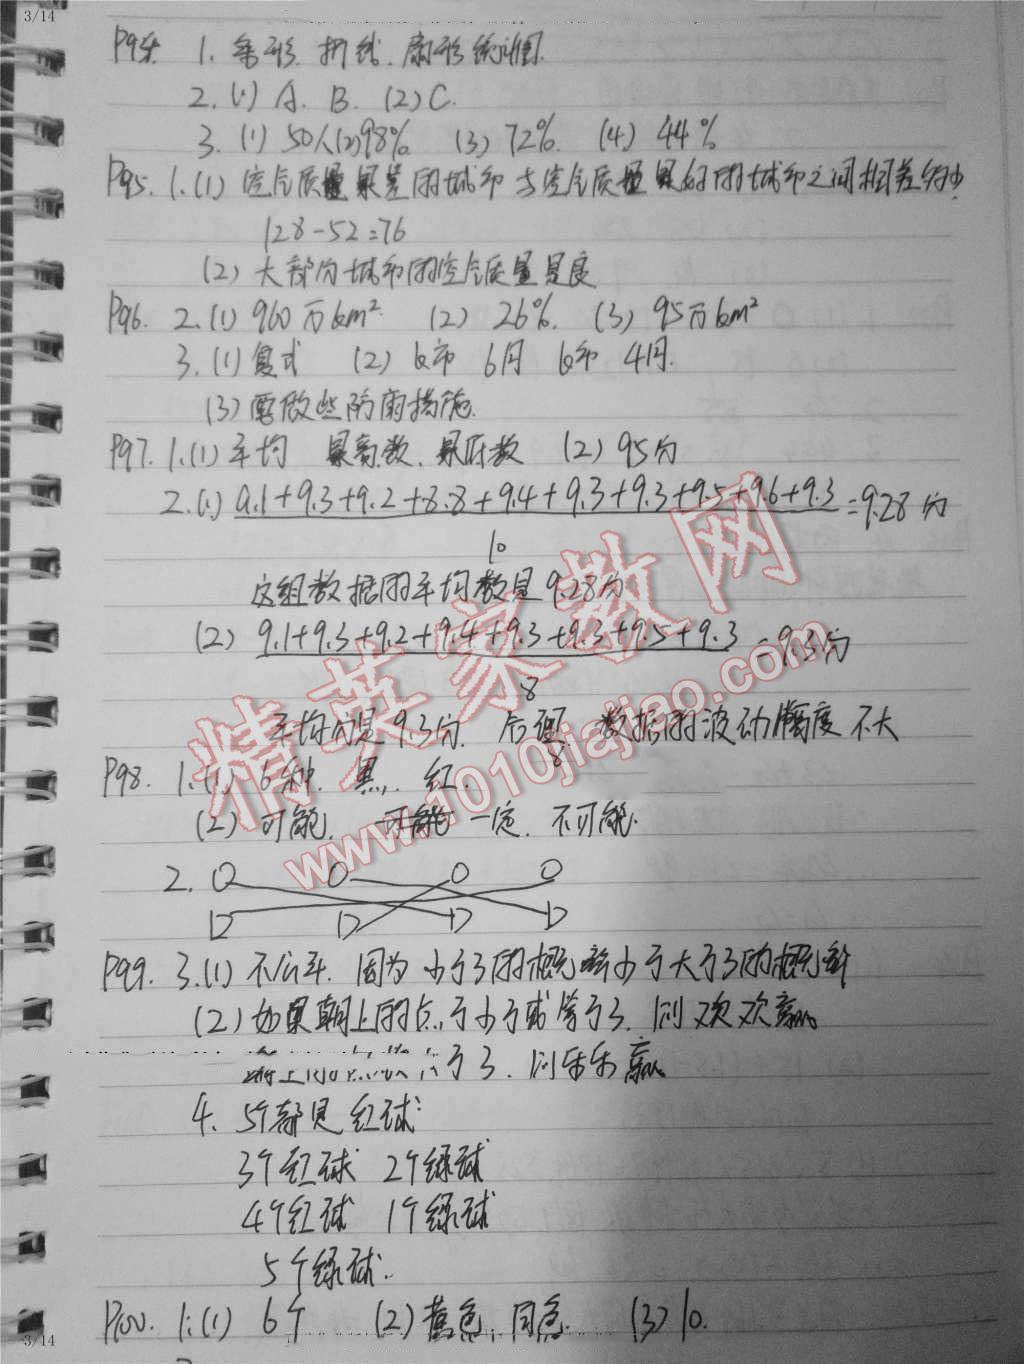 3/14
P94. 1. 条形. 折线. 扇形统计图.
2. (1) A. B. (2) C.
3. (1) 50人 (2) 98% (3) 72%. (4) 44%
P95. 1. (1) 空气质量最差的城市与空气质量最好的城市之间相差多少.
128-52=76
(2) 大部分城市的空气质量是良
P96. 2. (1) 960万km² (2) 26%. (3) 95万km²
3. (1) 复式 (2) 6月 4月.
(3) 要做些防雨措施.
P97. 1. (1) 平均 最高数. 最低数 (2) 95分
2. (1) 9.1+9.3+9.2+8.8+9.4+9.3+9.3+9.5+9.6+9.3 =9.28分
10
这组数据的平均数是9.28分
(2) 9.1+9.3+9.2+9.4+9.3+9.3+9.5+9.3 =9.3分
8
平均分是9.3分. 后面. 数据的波动幅度不大
8
P98. 1. (1) 6种. 黑. 红.
(2) 可能. 一定. 不可能.
2.
P99. 3. (1) 不公平. 因为小于3的概率小于大于3的概率
(2) 如果朝上的点于小于或等于3. 则欢欢赢
于3. 则乐乐赢
4. 5个都是红球
3个红球 2个绿球
4个红球 1个绿球
5个绿球.
P100. 1. (1) 6个 (2) 黄色. 同色. (3) 10.
3/14
精英家教网
www.1010jiajiao.com